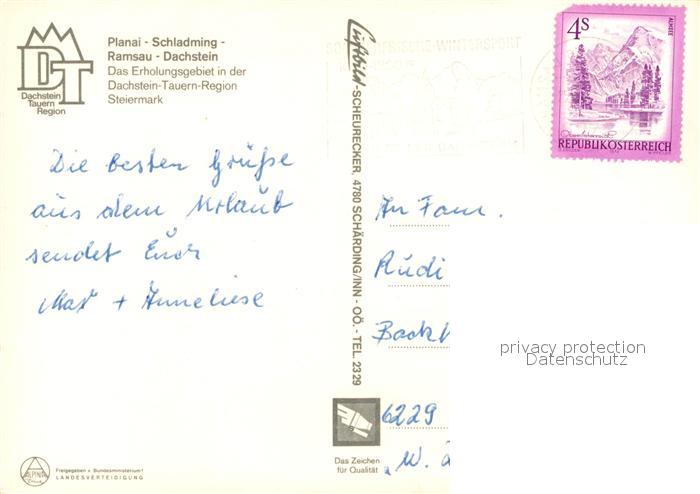 Planai - Schladming -
Ramsau - Dachstein
Das Erholungsgebiet in der
Dachstein-Tauern-Region
Steiermark
DT
Dachstein
Tauern
Region
Die besten Grüße
aus dem Urlaub
sendet Euch
Max + Anneliese
Freigegeben v. Bundesministerium f.
LANDESVERTEIDIGUNG
ALPINA
Luftbild-SCHEURECKER, 4780 SCHÄRDING/INN - OÖ. - TEL. 23 29
Das Zeichen
für Qualität
4S
ALMSEE
Oberösterreich
REPUBLIK ÖSTERREICH
WINTERSPORT
An Fam.
Rudi
6229
"W.
privacy protection
Datenschutz